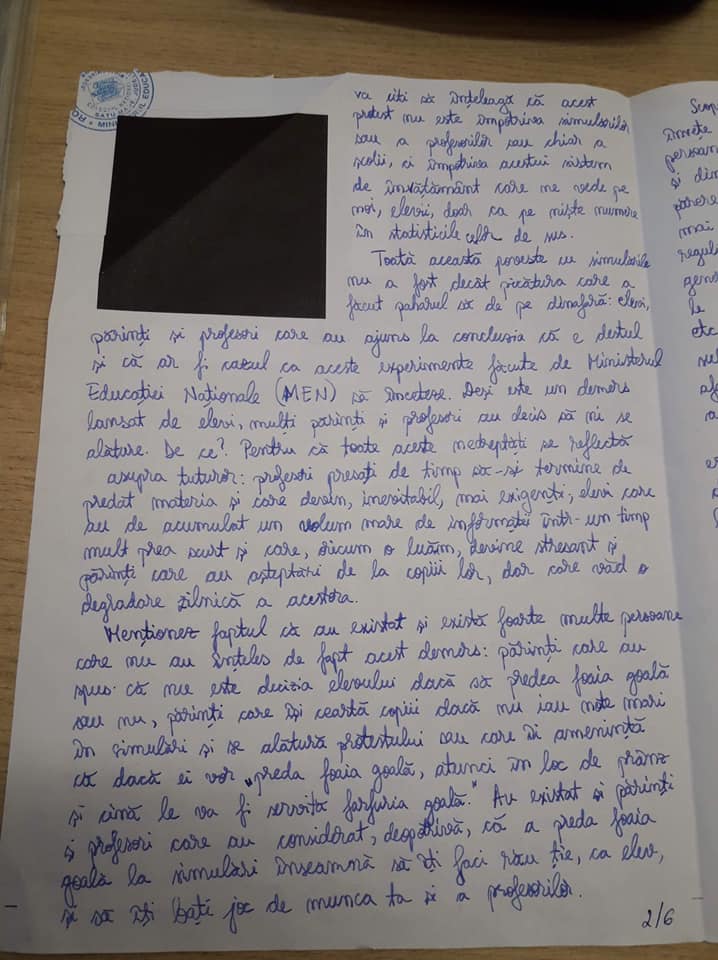 va citi să înțeleagă că acest
protest nu este împotriva simulărilor
sau a profesorilor sau chiar a
școlii, ci împotriva acestui sistem
de învățământ care ne vede pe
noi, elevii, doar ca pe niște numere
în statisticile celor de sus.
Toată această poveste cu simulările
nu a fost decât picătura care a
făcut paharul să dea pe dinafară: elevi,
părinți și profesori care au ajuns la concluzia că e destul
și că ar fi cazul ca aceste experimente făcute de Ministerul
Educației Naționale (MEN) să înceteze. Deși este un demers
lansat de elevi, mulți părinți și profesori au decis să ni se
alăture. De ce? Pentru că toate aceste nedreptăți se reflectă
asupra tuturor: profesori presați de timp să-și termine de
predat materia și care devin, inevitabil, mai exigenți, elevi care
au de acumulat un volum mare de informații într-un timp
mult prea scurt și care, oricum o luăm, devine stresant și
părinți care au așteptări de la copiii lor, dar care văd o
degradare zilnică a acestora.
Menționez faptul că au existat și există foarte multe persoane
care nu au înțeles de fapt acest demers: părinți care au
spus că nu este decizia elevului dacă să predea foaia goală
sau nu, părinți care își ceartă copiii dacă nu iau note mari
în simulări și se alătură protestului sau care îi amenință
că dacă ei vor „preda foaia goală, atunci în loc de prânz
și cină le va fi servită farfuria goală." Au existat și părinți
și profesori care au considerat, deopotrivă, că a preda foaia
goală la simulări înseamnă să îți faci rău ție, ca elev,
și să îți bați joc de munca ta și a profesorilor.
2/6
Semp
învețe
persoan
și din
părere
mai
regul
gene
le
etc